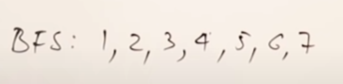 BFS: 1, 2, 3, 4, 5, 6, 7